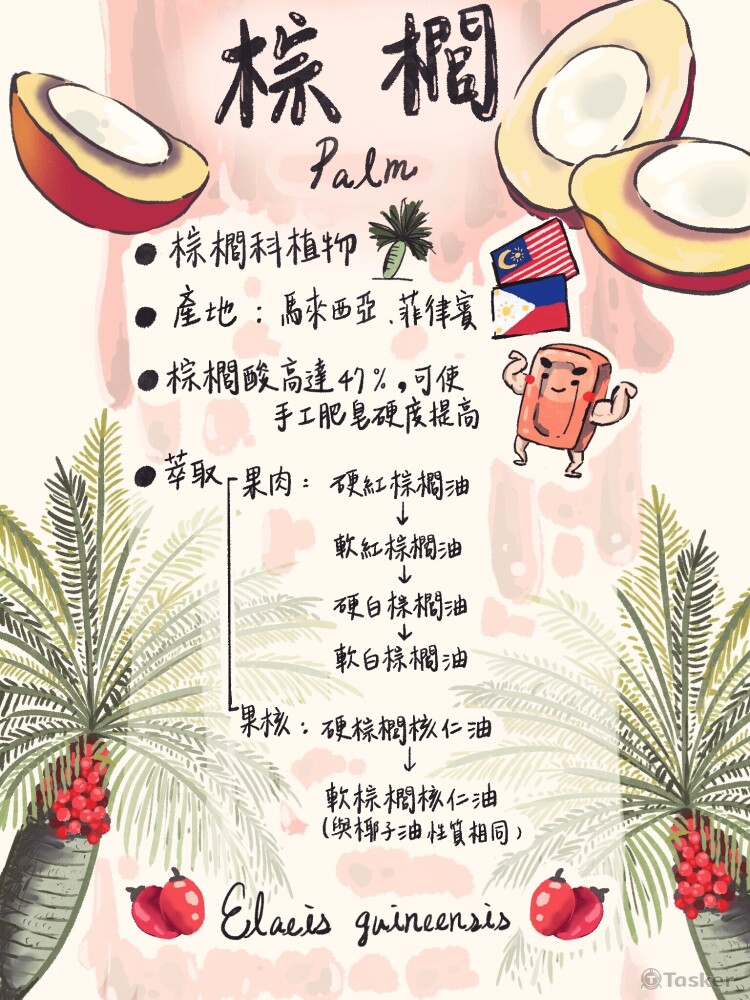 棕櫚
Palm
● 棕櫚科植物
● 產地：馬來西亞、菲律賓
● 棕櫚酸高達47%，可使
手工肥皂硬度提高
● 萃取
果肉：硬紅棕櫚油
↓
軟紅棕櫚油
↓
硬白棕櫚油
↓
軟白棕櫚油
果核：硬棕櫚核仁油
↓
軟棕櫚核仁油
（與椰子油性質相同）
Elaeis guineensis
Tasker